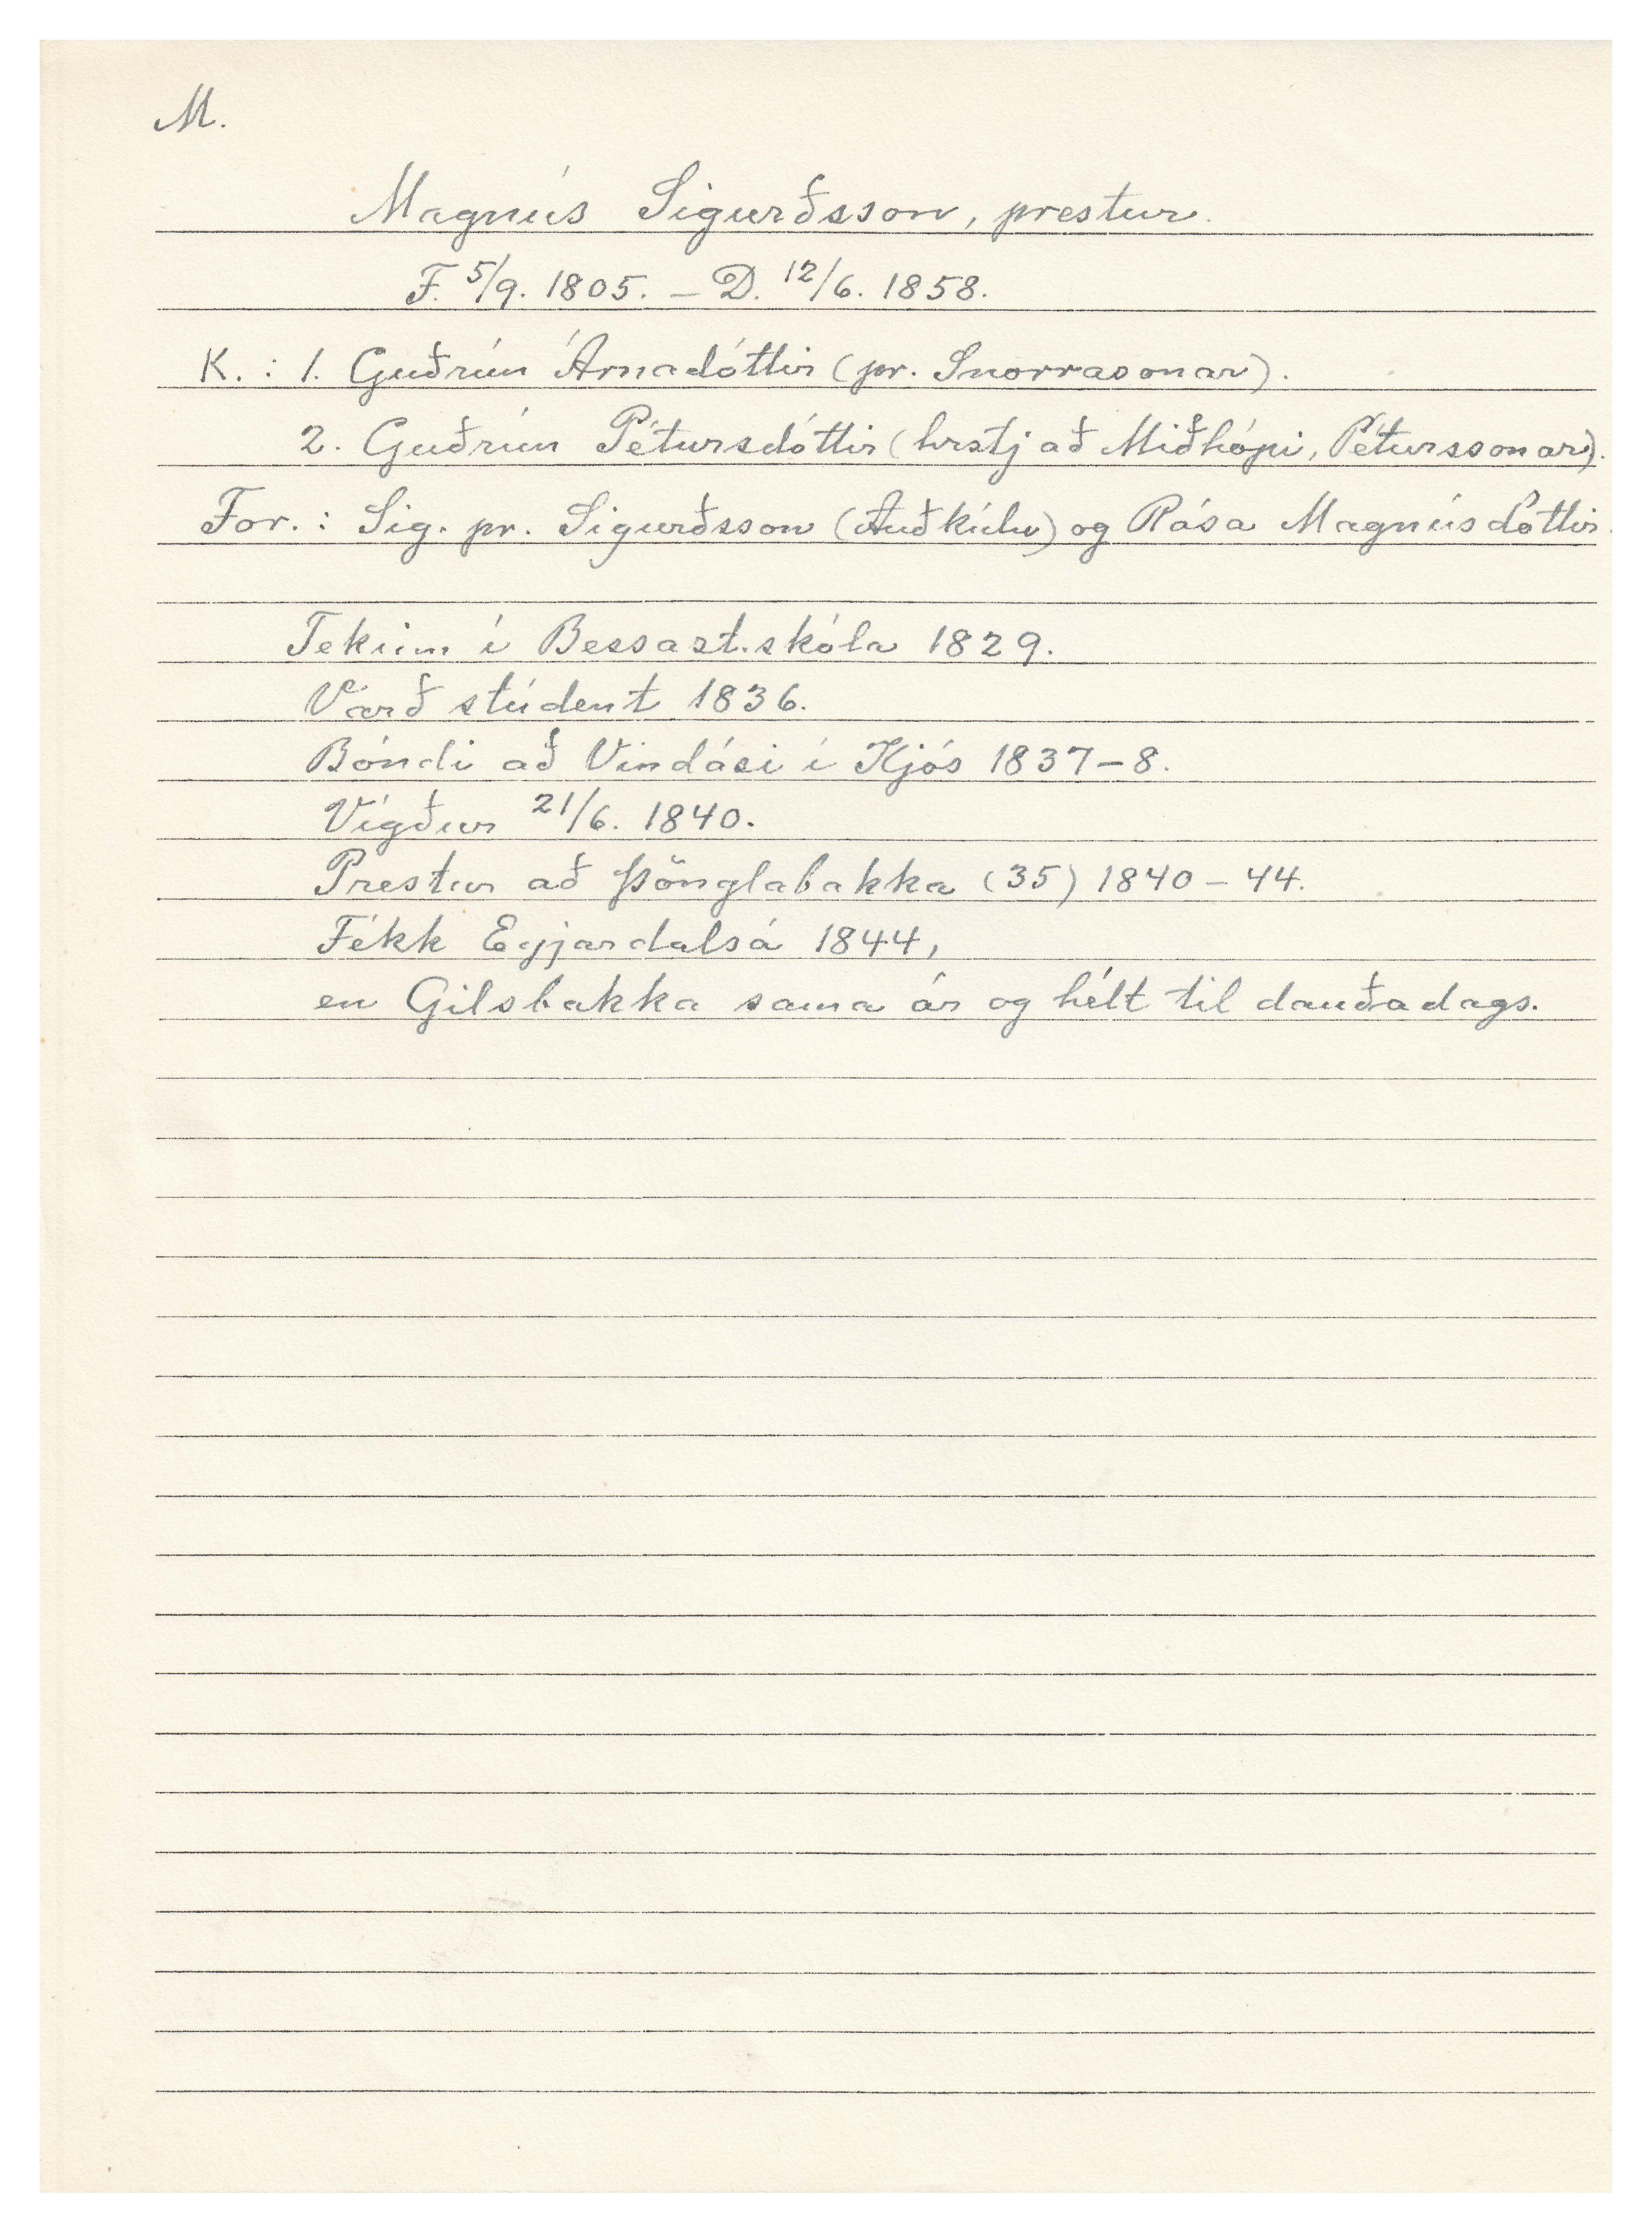 M.
Magnús Sigurðsson, prestur.
F. 5/9. 1805. – D. 12/6. 1858.
K. : 1. Guðrún Árnadóttir (pr. Snorrasonar).
2. Guðrún Pétursdóttir (hrstj að Miðhópi, Péturssonar).
For. : Sig. pr. Sigurðsson (Auðkúlu) og Rósa Magnúsdóttir.
Tekinn í Bessast.skóla 1829.
Varð stúdent 1836.
Bóndi að Vindási í Kjós 1837–8.
Vígður 21/6. 1840.
Prestur að Þönglabakka (35) 1840 – 44.
Fékk Eyjardalsá 1844,
en Gilsbakka sama ár og hélt til dauðadags.